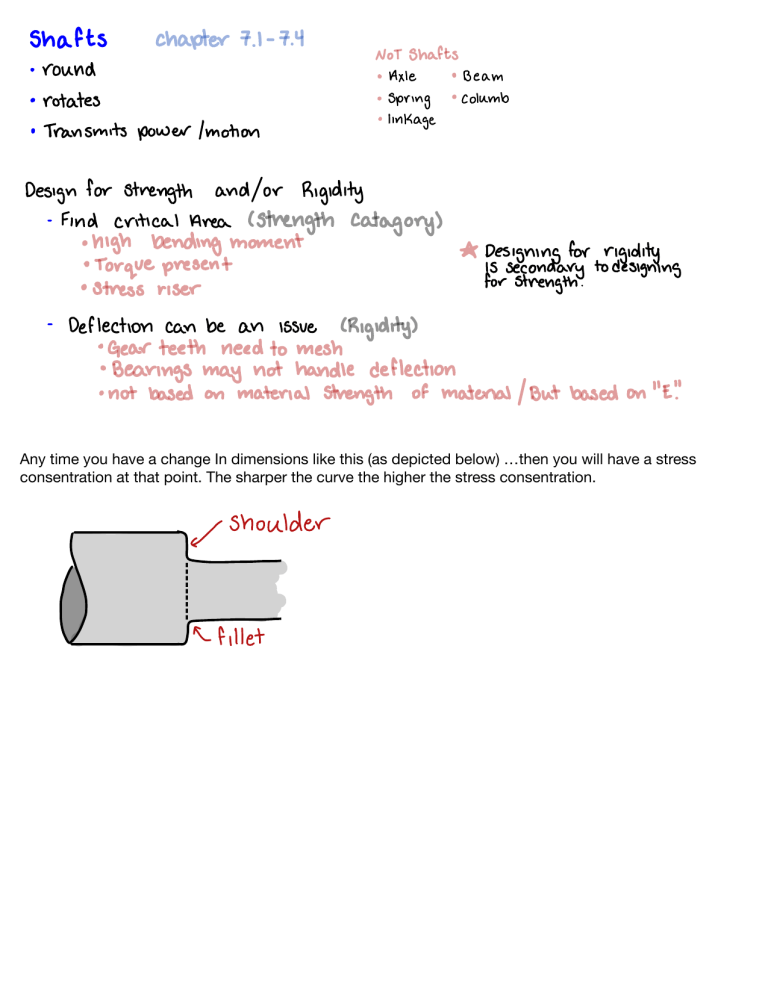 Shafts chapter 7.1-7.4
• round
• rotates
• Transmits power/motion
NOT Shafts
• Axle • Beam
• Spring • Columb
• linkage
Design for strength and/or Rigidity
- Find critical Area (strength catagory)
• high bending moment
• Torque present
• stress riser
★ Designing for rigidity
is secondary to designing
for strength.
- Deflection can be an issue (Rigidity)
• Gear teeth need to mesh
• Bearings may not handle deflection
• not based on material strength of material / But based on "E."
Any time you have a change In dimensions like this (as depicted below) …then you will have a stress
consentration at that point. The sharper the curve the higher the stress consentration.
shoulder
fillet